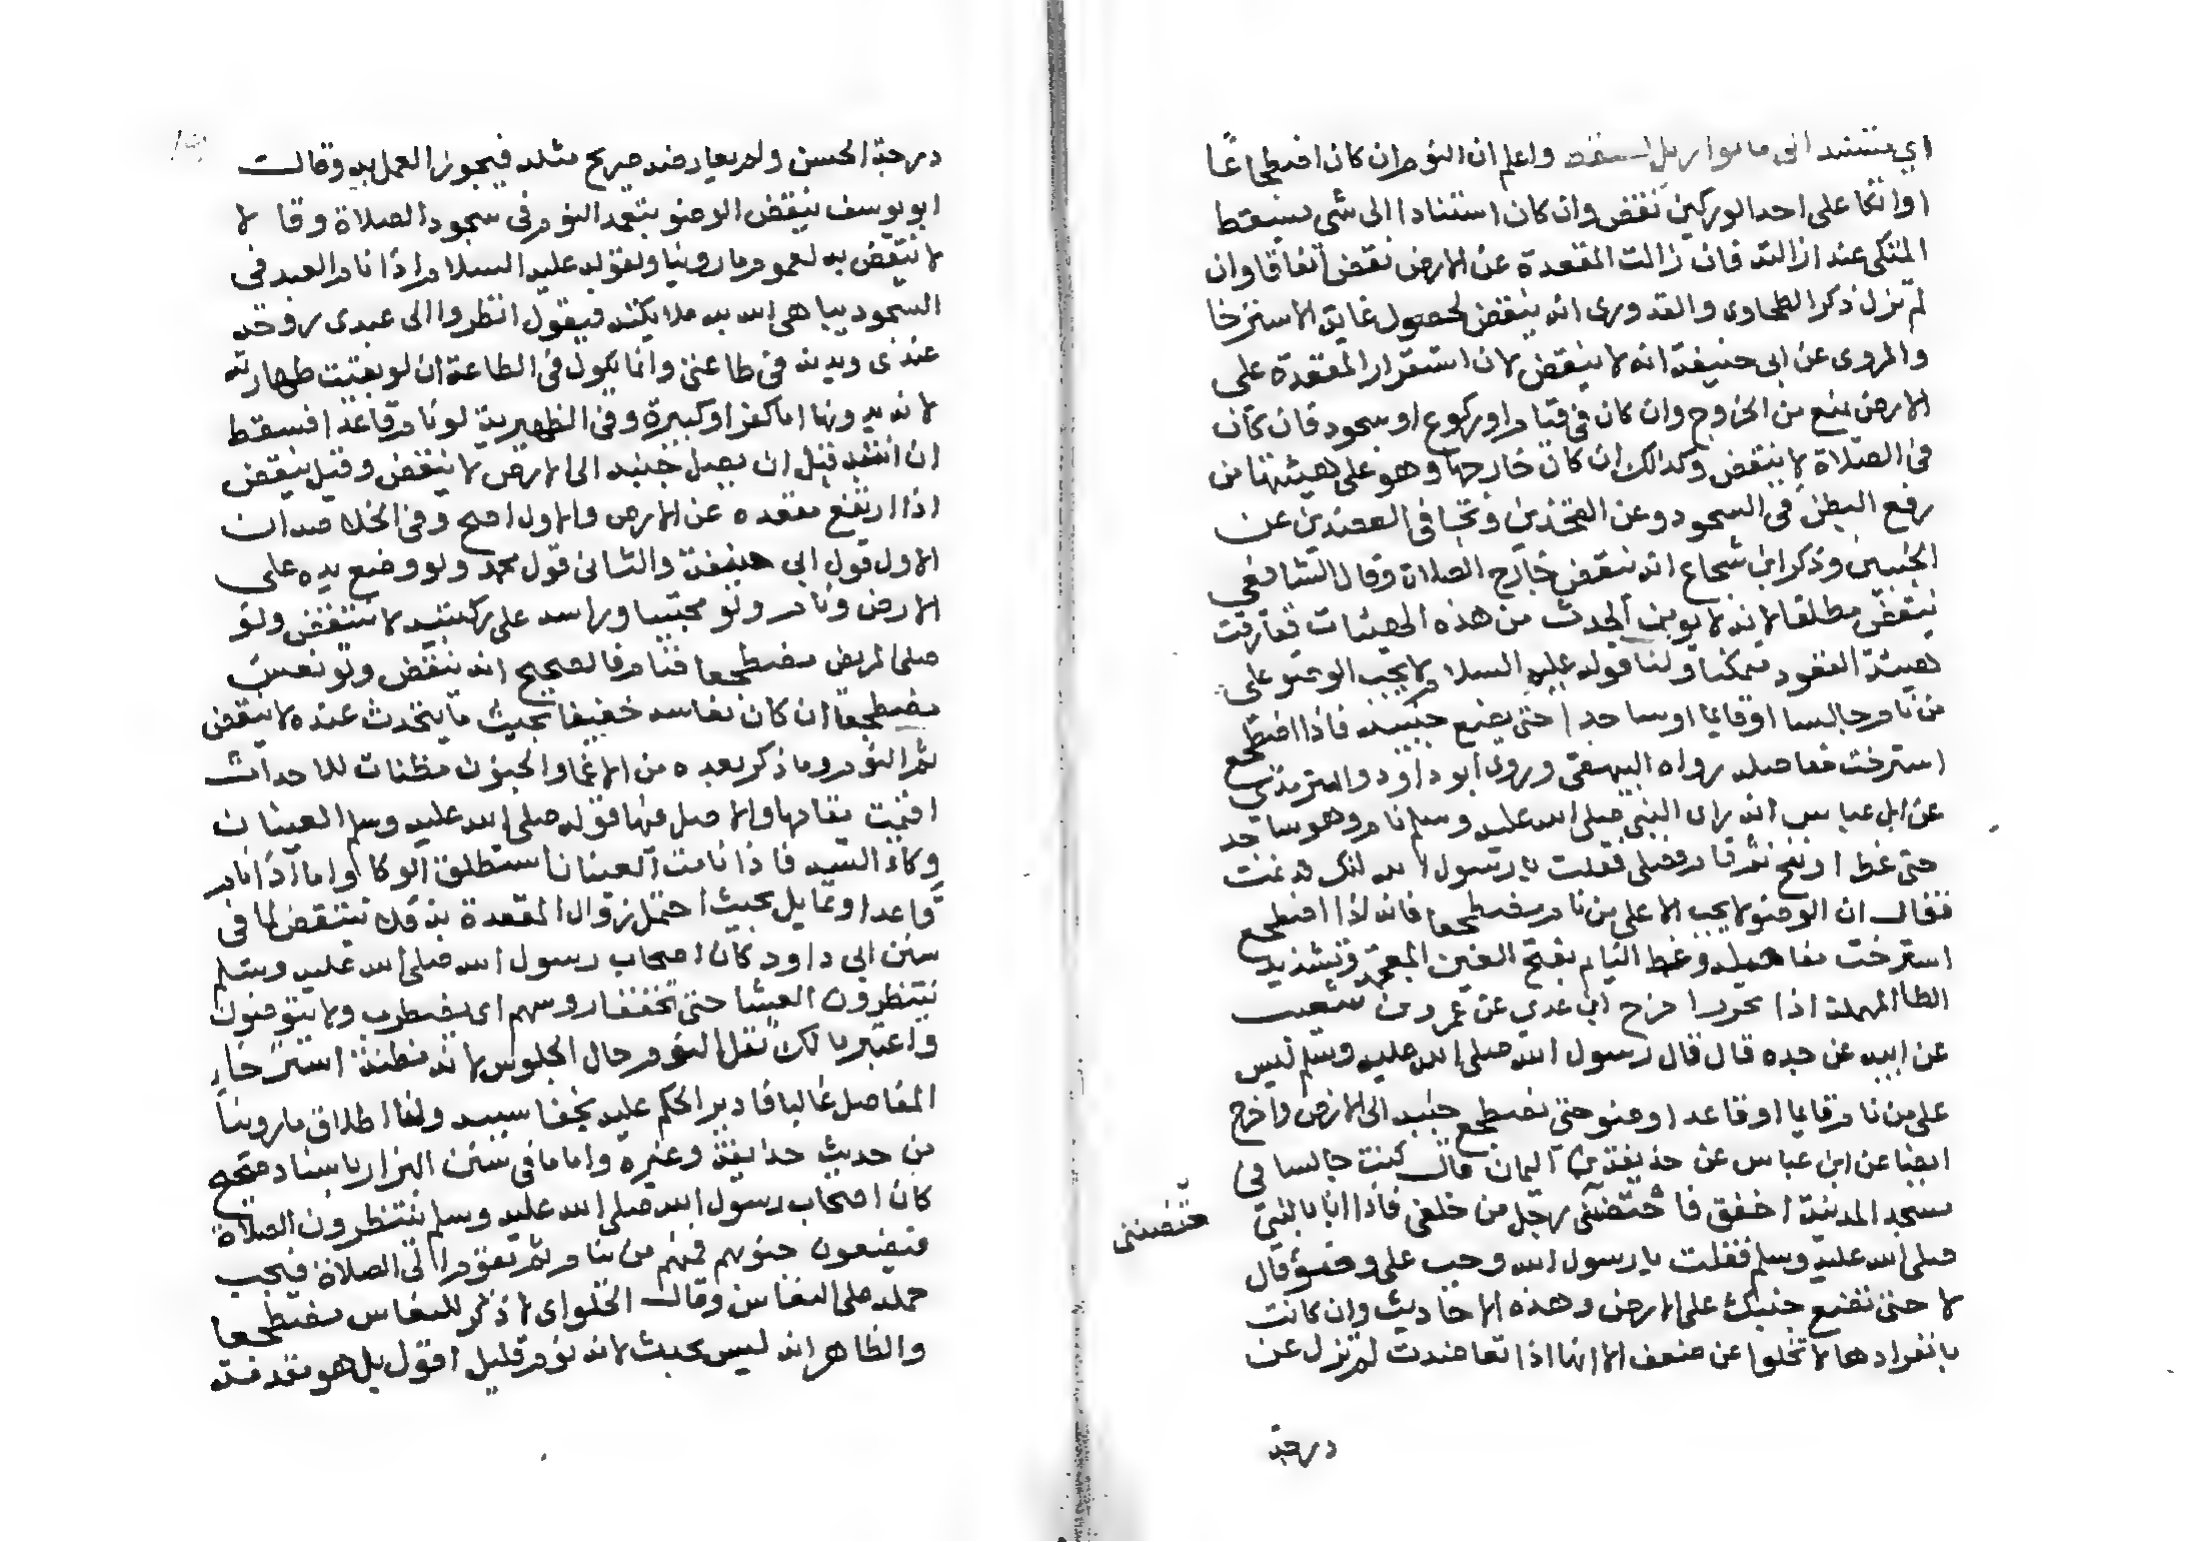 اي يستند الى ما لو ازيل لسقط واعلم ان النوم ان كان اضطجاعا
او اتكا على احد الوركين نقض وان كان استنادا الى شي يسقط
المتكي عند ازالته فان زالت المقعدة عن الارض نقض اتفاقا وان
لم تزل ذكر الطحاوى والقدورى انه ينقض لحصول غاية الاسترخا
والمروى عن ابى حنيفة انه لا ينقض لان استقرار المقعدة على
الارض يمنع من الخروج وان كان فى قيام او ركوع او سجود فان كان
فى الصلاة لا ينقض وكذلك ان كان خارجها وهو على هيئتها من
رفع البطن فى السجود وعن الفخذين وتجافى العضدين عن
الجنبين وذكر ابن شجاع انه ينقض خارج الصلاة وقال الشافعى
ينقض مطلقا لانه لا يومن الحدث من هذه الهيئات ففارقت
هيئة القعود متمكنا ولنا قوله عليه السلام لا يجب الوضو على
من نام جالسا او قايما او ساجدا حتى يضع جنبه فاذا اضطجع
استرخت مفاصله رواه البيهقى وروى ابو داود والترمذي
عن ابن عباس انه راى النبي صلى الله عليه وسلم نام وهو ساجد
حتى غط او نفخ ثم قام فصلى فقلت يا رسول الله انك قد نمت
فقال ان الوضو لا يجب الا على من نام مضطجعا فانه اذا اضطجع
استرخت مفاصله وغط النايم بفتح الغين المعجمة وتشديد
الطا المهملة اذا نخر واخرج ابن عدي عن عمرو بن شعيب
عن ابيه عن جده قال قال رسول الله صلى الله عليه وسلم ليس
على من نام قايما او قاعدا وضو حتى يضطجع جنبه الى الارض واخرج
ايضا عن ابن عباس عن حذيفة بن اليمان قال كنت جالسا فى
مسجد المدينة اخفق فاحتضننى رجل من خلفى فاذا انا بالنبي
فتضننى
صلى الله عليه وسلم فقلت يا رسول الله وجب على وضو قال
لا حتى تضع جنبك على الارض وهذه الاحاديث وان كانت
بانفرادها لا تخلوا عن ضعف الا انها اذا تعاضدت لم تزل عن
درجة
درجة الحسن ولم يعارضه صريح مثله فيجوز العمل به وقال
ابو يوسف ينقض الوضو بتعمد النوم فى سجود الصلاة وقا لا
لا ينقض به لعموم ما روينا ولقوله عليه السلام اذا نام العبد فى
السجود يباهى الله به ملايكته فيقول انظروا الى عبدى روحه
عندى وبدنه فى طاعتى وانما يكون فى الطاعة ان لو بقيت طهارته
لانه بدونها اما كفر او كبيرة وفى الظهيرية لو نام قاعدا فسقط
ان انتبه قبل ان يصل جنبه الى الارض لا ينقض وقيل ينقض
اذا ارتفع مقعده عن الارض والاول اصح وفى الخلاصة ان
الاول قول ابى حنيفة والثانى قول محمد ولو وضع يده على
الارض ونام ولو محتبيا وراسه على ركبتيه لا ينتقض ولو
صلى المريض مضطجعا فنام فالصحيح انه ينقض ولو نعس
مضطجعا ان كان نعاسه خفيفا بحيث ما يتحدث عنده لا ينقض
ثم النوم وما ذكر بعده من الاغما والجنون مظنات للاحداث
اقيمت مقامها والاصل فيها قوله صلى الله عليه وسلم العينان
وكاء السه فاذا نامت العينان استطلق الوكا واما اذا نام
قاعدا وتمايل بحيث احتمل زوال المقعدة به فلا ينتقض لما فى
سنن ابى داود كان اصحاب رسول الله صلى الله عليه وسلم
ينتظرون العشا حتى تخفق روسهم اى تضطرب ولا يتوضون
واعتبر مالك ثقل النوم حال الجلوس لانه مظنة استرخاء
المفاصل غالبا فادير الحكم عليه بخفا سببه ولنا اطلاق ما روينا
من حديث حذيفة وغيره واما ما فى سنن البزار باسناد صحيح
كان اصحاب رسول الله صلى الله عليه وسلم ينتظرون الصلاة
فيضعون جنوبهم فمنهم من ينام ثم يقوم الى الصلاة فيجب
حمله على النعاس وقال الحلوانى لا ذكر للنعاس مضطجعا
والظاهر انه ليس بحدث لانه نوم قليل اقول بل هو مقدمة